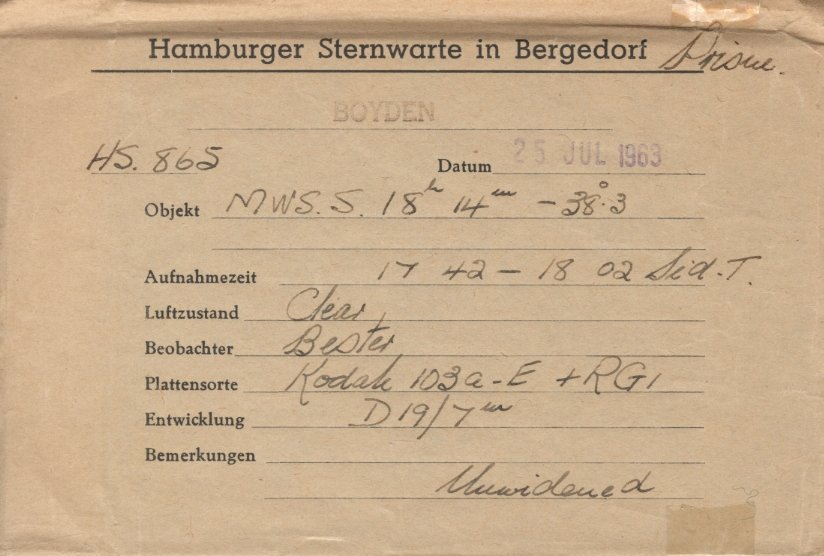 Hamburger Sternwarte in Bergedorf Prisme.
BOYDEN
HS. 865 Datum 25 JUL 1963
Objekt MWS. S. 18h 14m -38°.3
Aufnahmezeit 17 42 - 18 02 Sid. T.
Luftzustand Clear
Beobachter Bester
Plattensorte Kodak 103a-E + RG1
Entwicklung D19/7m
Bemerkungen
Unwidened